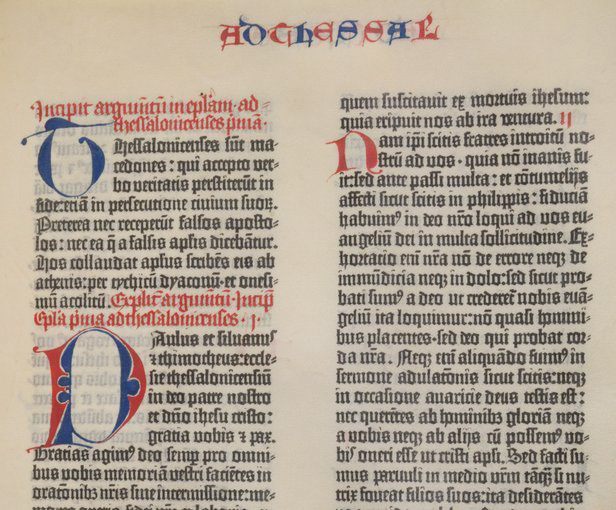 AD THESSAL
Incipit argumētū in eplam ad
thessalonicenses prima
THessalonicenses sūt ma-
cedones: qui accepto ver-
bo veritatis perstiterūt in
fide: etiā in persecutione civium suorꝫ.
Preterea nec receperūt falsos aposto-
los: nec ea q̄ a falsis apl'is dicebātur.
Hos collaudat apl'us scribēs eis ab
athenis: per tychicū dyaconū et onesi-
mū acolitū. Explicit argumētū Incipit
Epla prima ad thessalonicenses . i .
PAulus et silvanus
et thimotheus: eccle-
sie thessalonicensiū
in deo patre nostro
et dño ihesu cristo:
gratia vobis et pax.
Gratias agimꝰ deo semp pro omni-
bus vobis memoriā vestri faciētes in
oratōnibꝫ nr̄is sine intermissione: me-
quem suscitavit ex mortuis ihesum:
qui eripuit nos ab ira ventura. II
Nam ipi scitis fratres introitū no-
strū ad vos · quia nō inanis fu-
it: sed ante passi multa: et cōtumelijs
affecti sicut scitis in philippis: fiduciā
habuimꝰ in deo nr̄o loqui ad vos eu-
angeliū dei in multa sollicitudine. Ex-
hortatio eni nr̄a nō de errore neqꝫ de
immūdicia neqꝫ in dolo: sed sicut pro-
bati sumꝰ a deo ut crederet nobis euā-
geliū ita loquimur: nō quasi homini-
bus placentes · sed deo qui probat cor-
da nr̄a. Neqꝫ eni aliquādo fuimꝰ in
sermone adulatōnis sicut scitis: neqꝫ
in occasione avaricie deus testis est:
nec querētes ab hominibꝫ gloriā neqꝫ
a vobis neqꝫ ab alijs cū possemꝰ vo-
bis oneri esse ut cristi apl'i. Sed facti su-
mus parvuli in medio vr̄m tāqꝫ si nu-
trix foveat filios suos: ita desiderātes